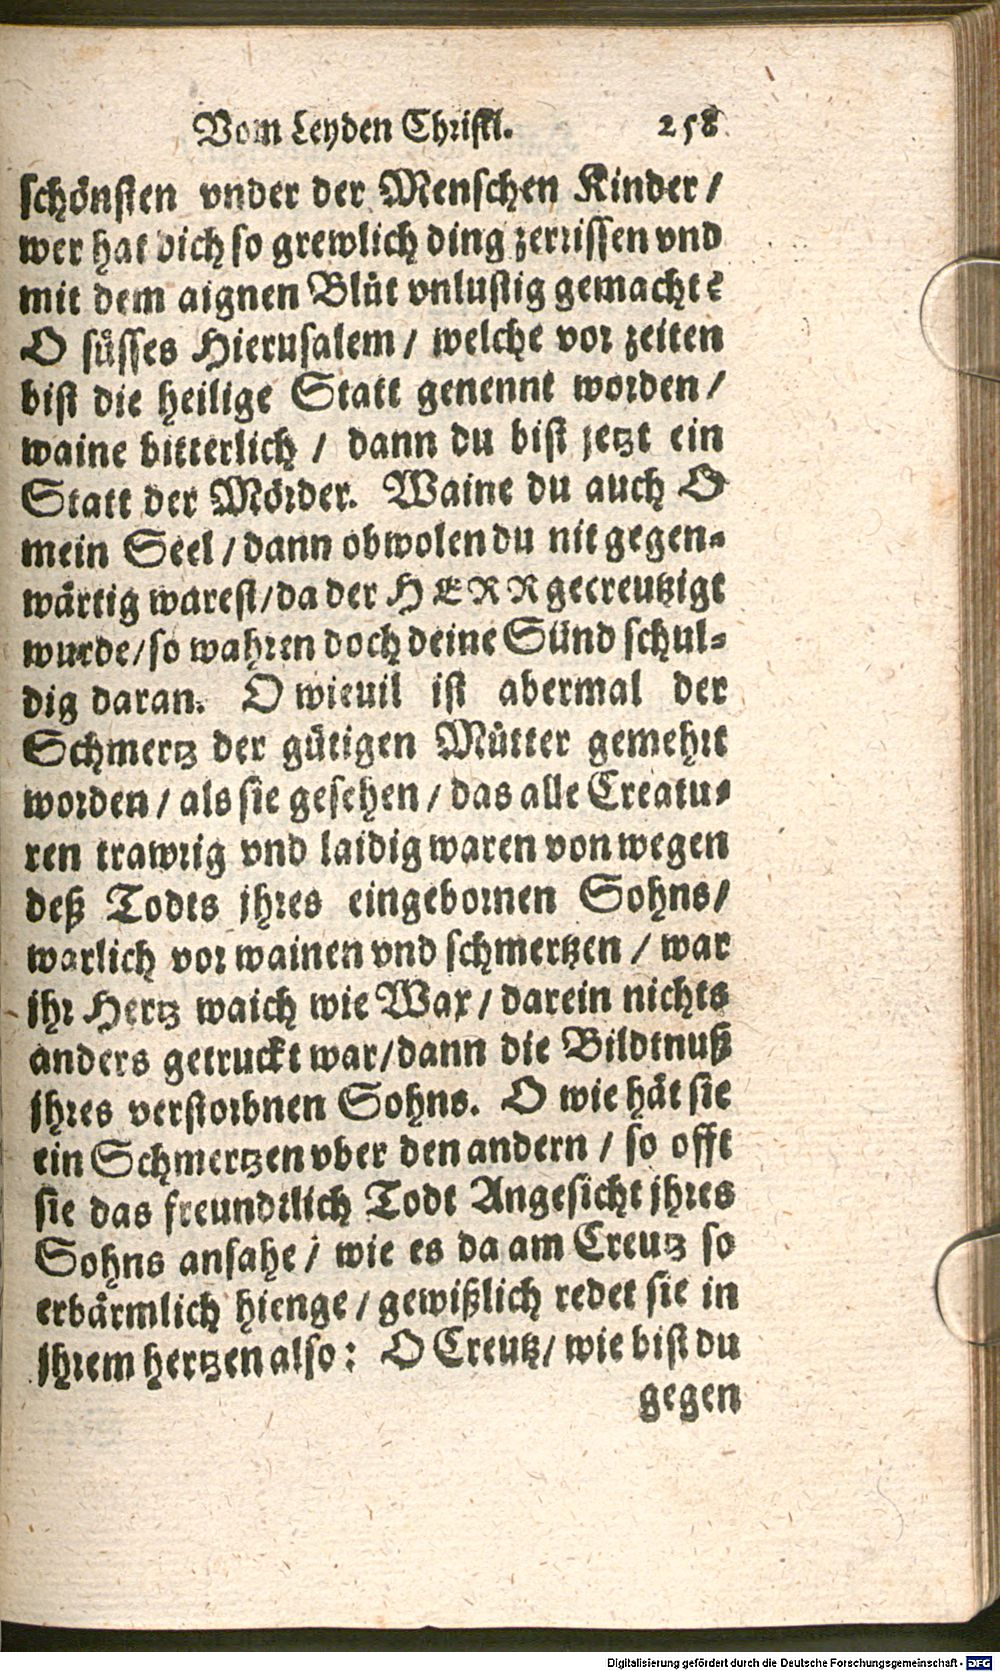 Vom Leyden Christi. 258
schönsten vnder der Menschen Kinder /
wer hat dich so grewlich ding zerrissen vnd
mit dem aignen Blůt vnlustig gemacht?
O sůsses Hierusalem / welche vor zeiten
bist die heilige Statt genennt worden /
waine bitterlich / dann du bist jetzt ein
Statt der Mörder. Waine du auch O
mein Seel / dann obwolen du nit gegen-
wärtig warest / da der HERR gecreutzigt
wurde / so wahren doch deine Sünd schul-
dig daran. O wieuil ist abermal der
Schmertz der gůtigen Můtter gemehrt
worden / als sie gesehen / das alle Creatu-
ren trawrig vnd laidig waren von wegen
deß Todts jhres eingebornen Sohns /
warlich vor wainen vnd schmertzen / war
jhr Hertz waich wie Wax / darein nichts
anders getruckt war / dann die Bildtnuß
jhres verstorbnen Sohns. O wie hät sie
ein Schmertzen vber den andern / so offt
sie das freundtlich Todt Angesicht jhres
Sohns ansahe / wie es da am Creutz so
erbärmlich hienge / gewißlich redet sie in
jhrem hertzen also: O Creutz / wie bist du
gegen
Digitalisierung gefördert durch die Deutsche Forschungsgemeinschaft - DFG